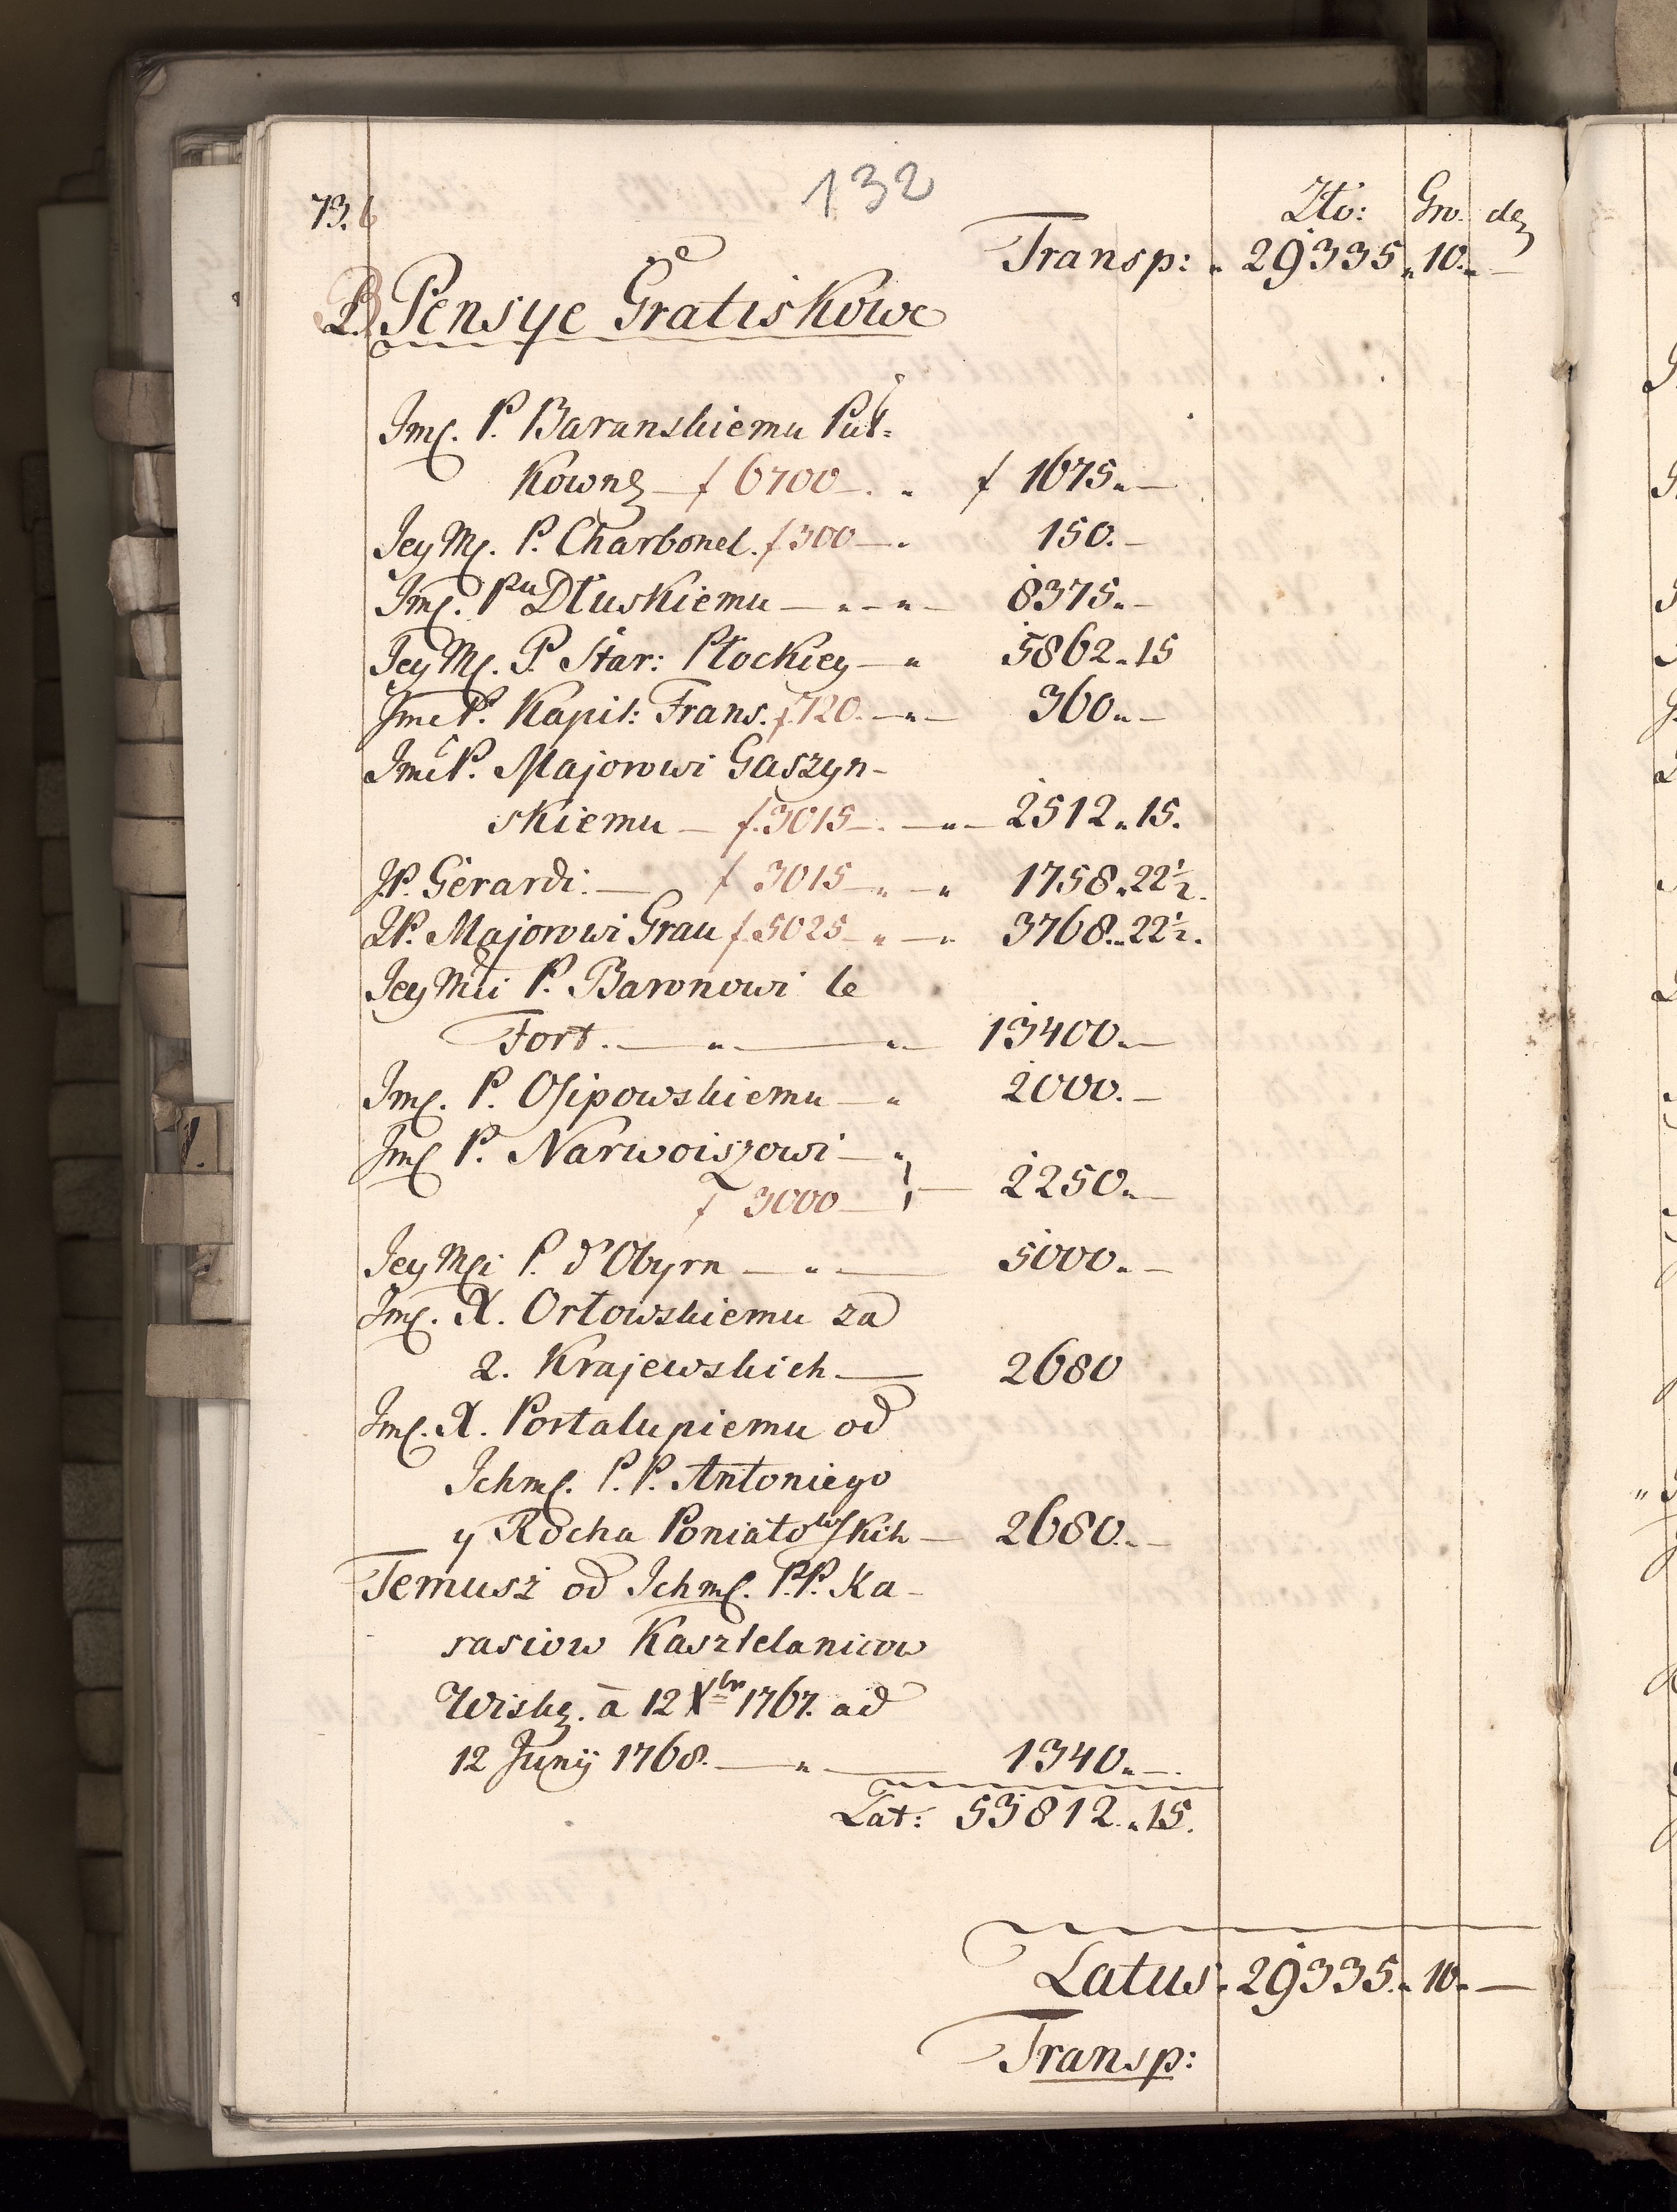 132
73.6
Zło: Gro. den
Transp: „ 29335 „ 10 „ —
B. Pensye Gratiskowe
Jmć. P. Baranskiemu Puł=
kown — f 6700 — . „ f 1675 „ —
Jey Mć. P. Charbonel. f 300 — . 150. —
Jmć. Pu Dłuskiemu — „ — „ — 8375 „ —
Jey Mć. P. Star: Płockiey — „ 5862 „ 15
Jmć P. Kapit: Frans. f 720. — „ — 360 „ —
Jmć P. Majorowi Gaszyn-
skiemu — f. 3015 — . — „ — 2512 „ 15.
JP. Gerardi. — f 3015 — „ — „ 1758 „ 22½.
JP. Majorowi Grau f. 5025 — „ — „ 3768 „ 22½.
Jey Mci P. Baronowi le
Fort. — „ — „ — 13400 „ —
Jmć. P. Osipowskiemu — „ 2000. —
Jmć P. Narwoiszowi — „
f 3000 — } — 2250 „ —
Jey Mci P. d'Obyrn — „ — 5000 „ —
Jmć. X. Orłowskiemu za
2. Krajewskich — 2680
Jmć. X. Portalupiemu od
Ichmć. P. P. Antoniego
y Rocha Poniatowskich — 2680 „ —
Temusz od Ichmć. P.P. Ka-
rasiow Kasztelanicow
Wiskz. à 12 Xbr 1767. ad
12 Junij 1768. — „ — 1340 „ —
Lat: 53812 „ 15.
Latus „ 29335 „ 10 „ —
Transp: